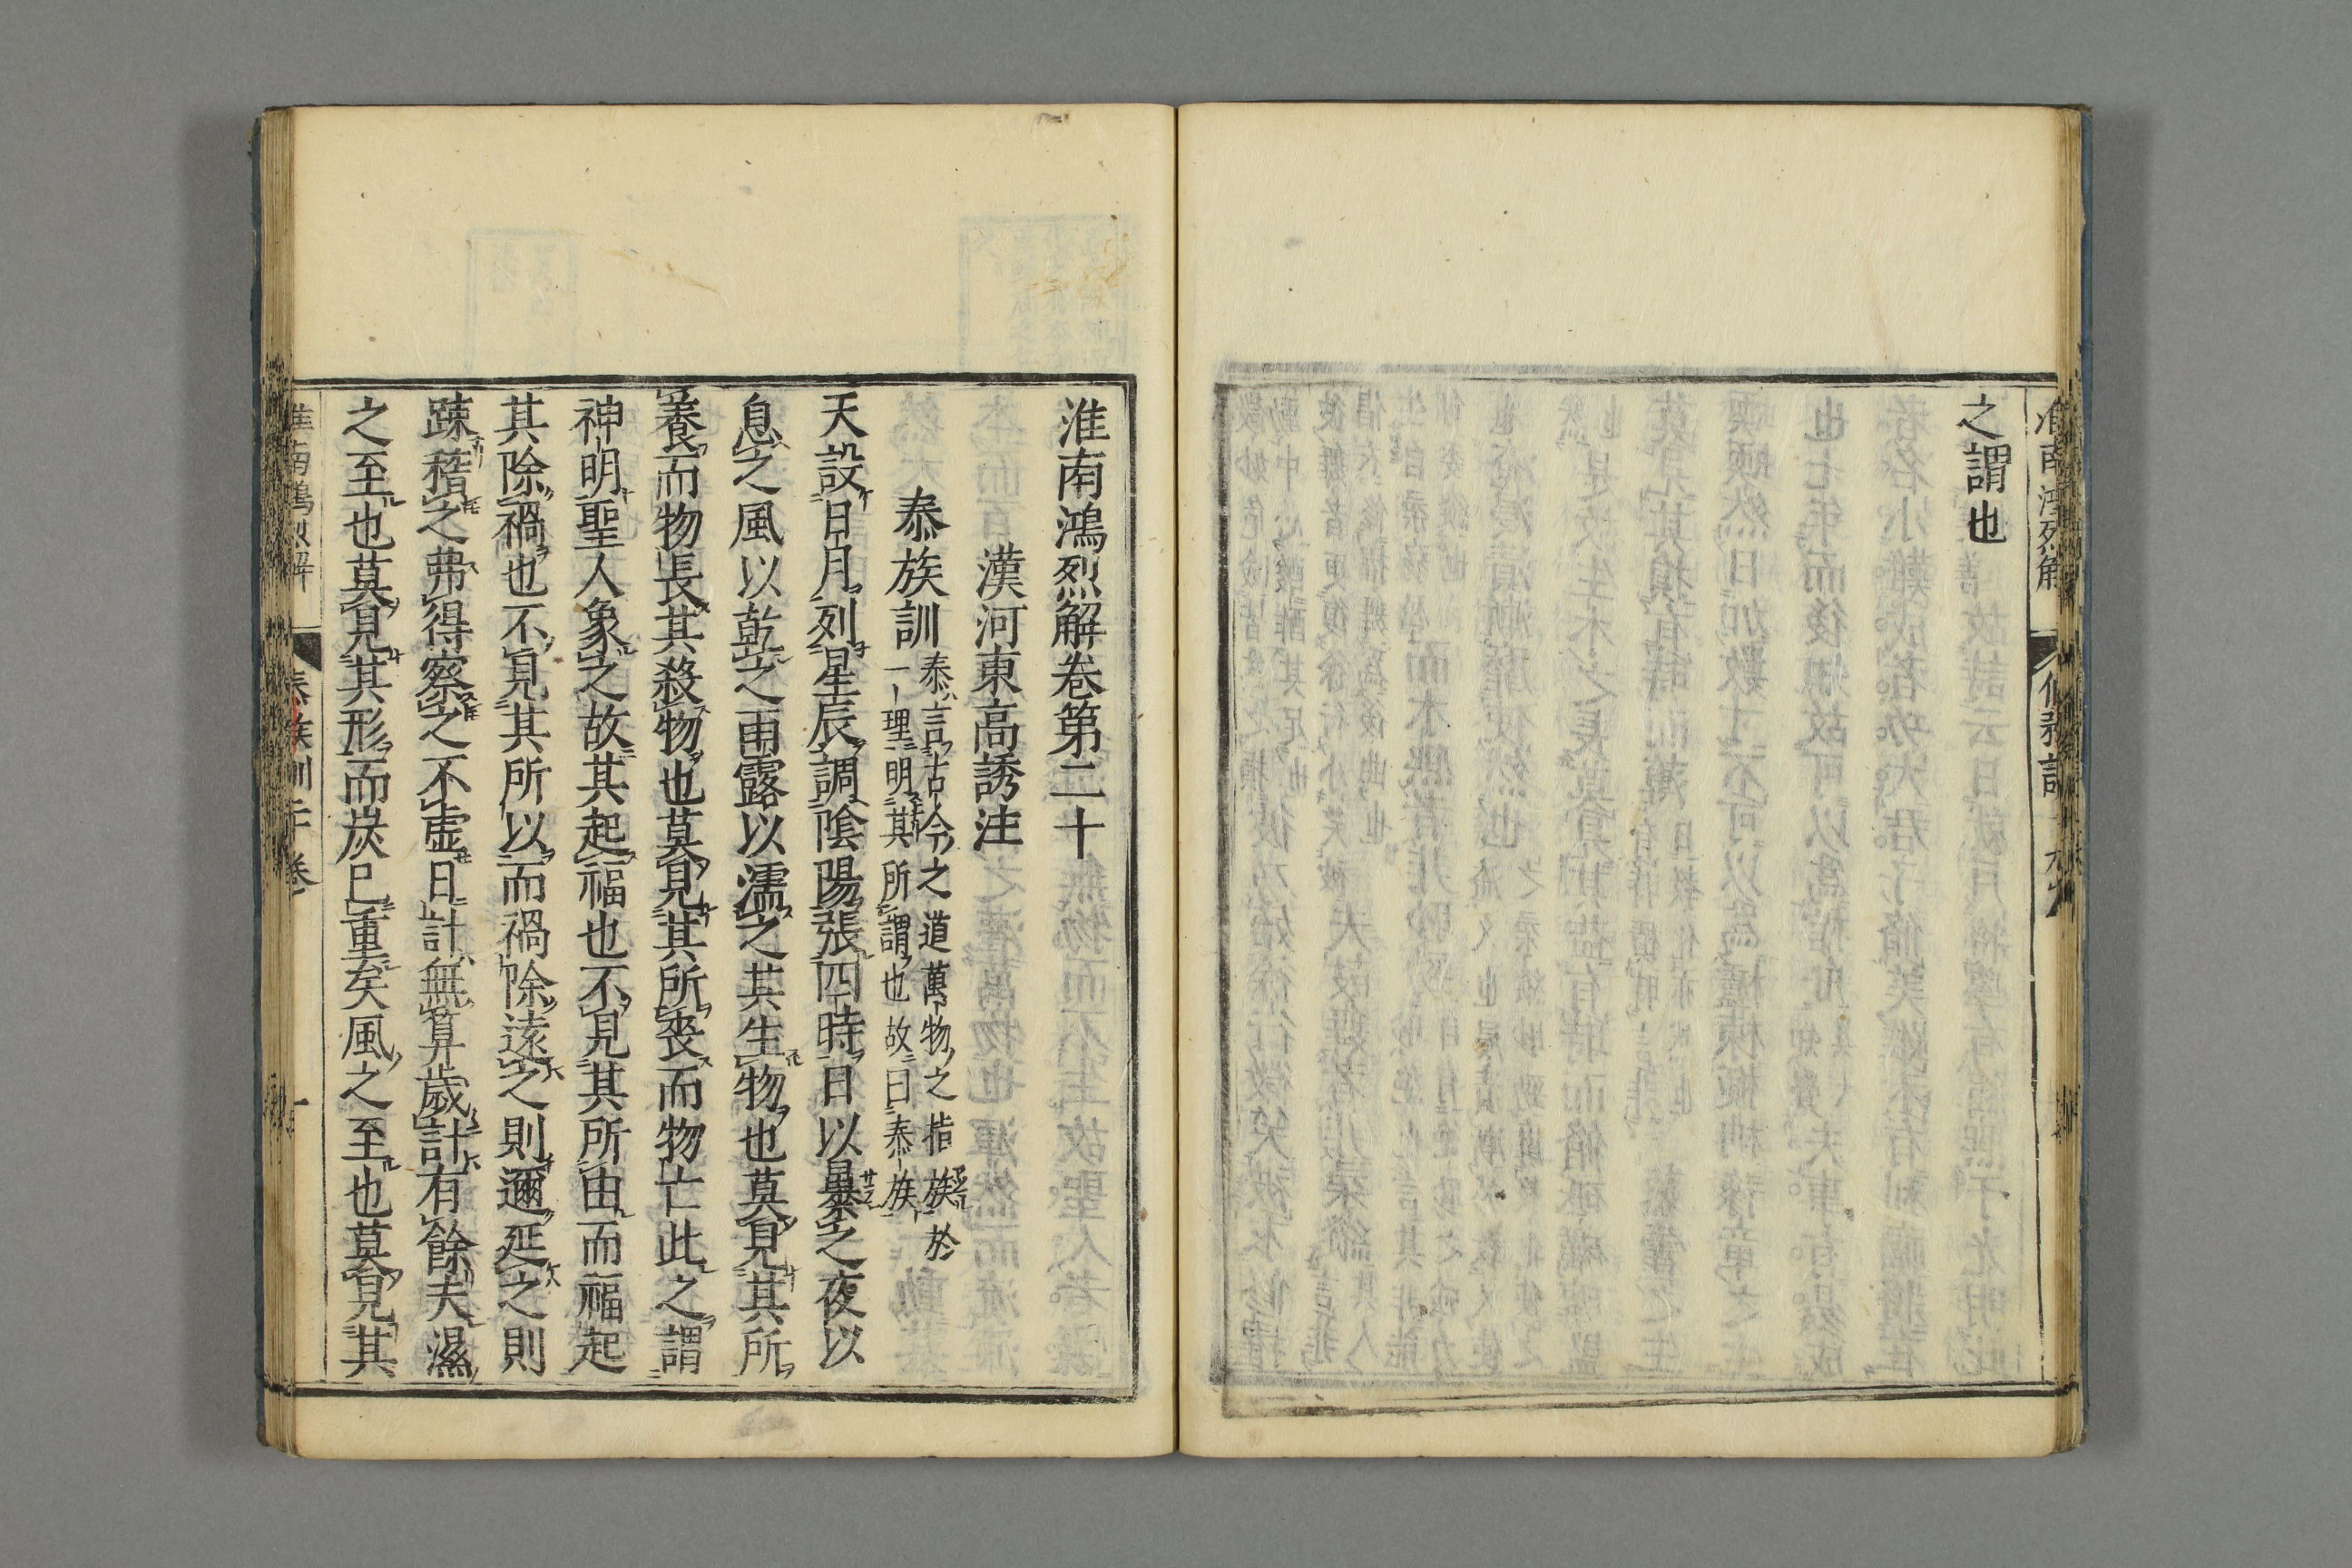 之謂也
淮南鴻烈解
淮南鴻烈解卷第二十
漢河東高誘注
泰族訓
泰言古今之道萬物之指族於
一理明其所謂也故曰泰族
天設日月列星辰調陰陽張四時日以暴之夜以
息之風以乾之雨露以濡之其生物也莫見其所
養而物長其殺物也莫見其所喪而物亡此之謂
神明聖人象之故其起福也不見其所由而福起
其除禍也不見其所以而禍除遠之則邇延之則
疎稽之弗得察之不虛日計無算歲計有餘夫濕
之至也莫見其形而炭已重矣風之至也莫見其
淮南鴻烈解
泰族訓二十卷
一